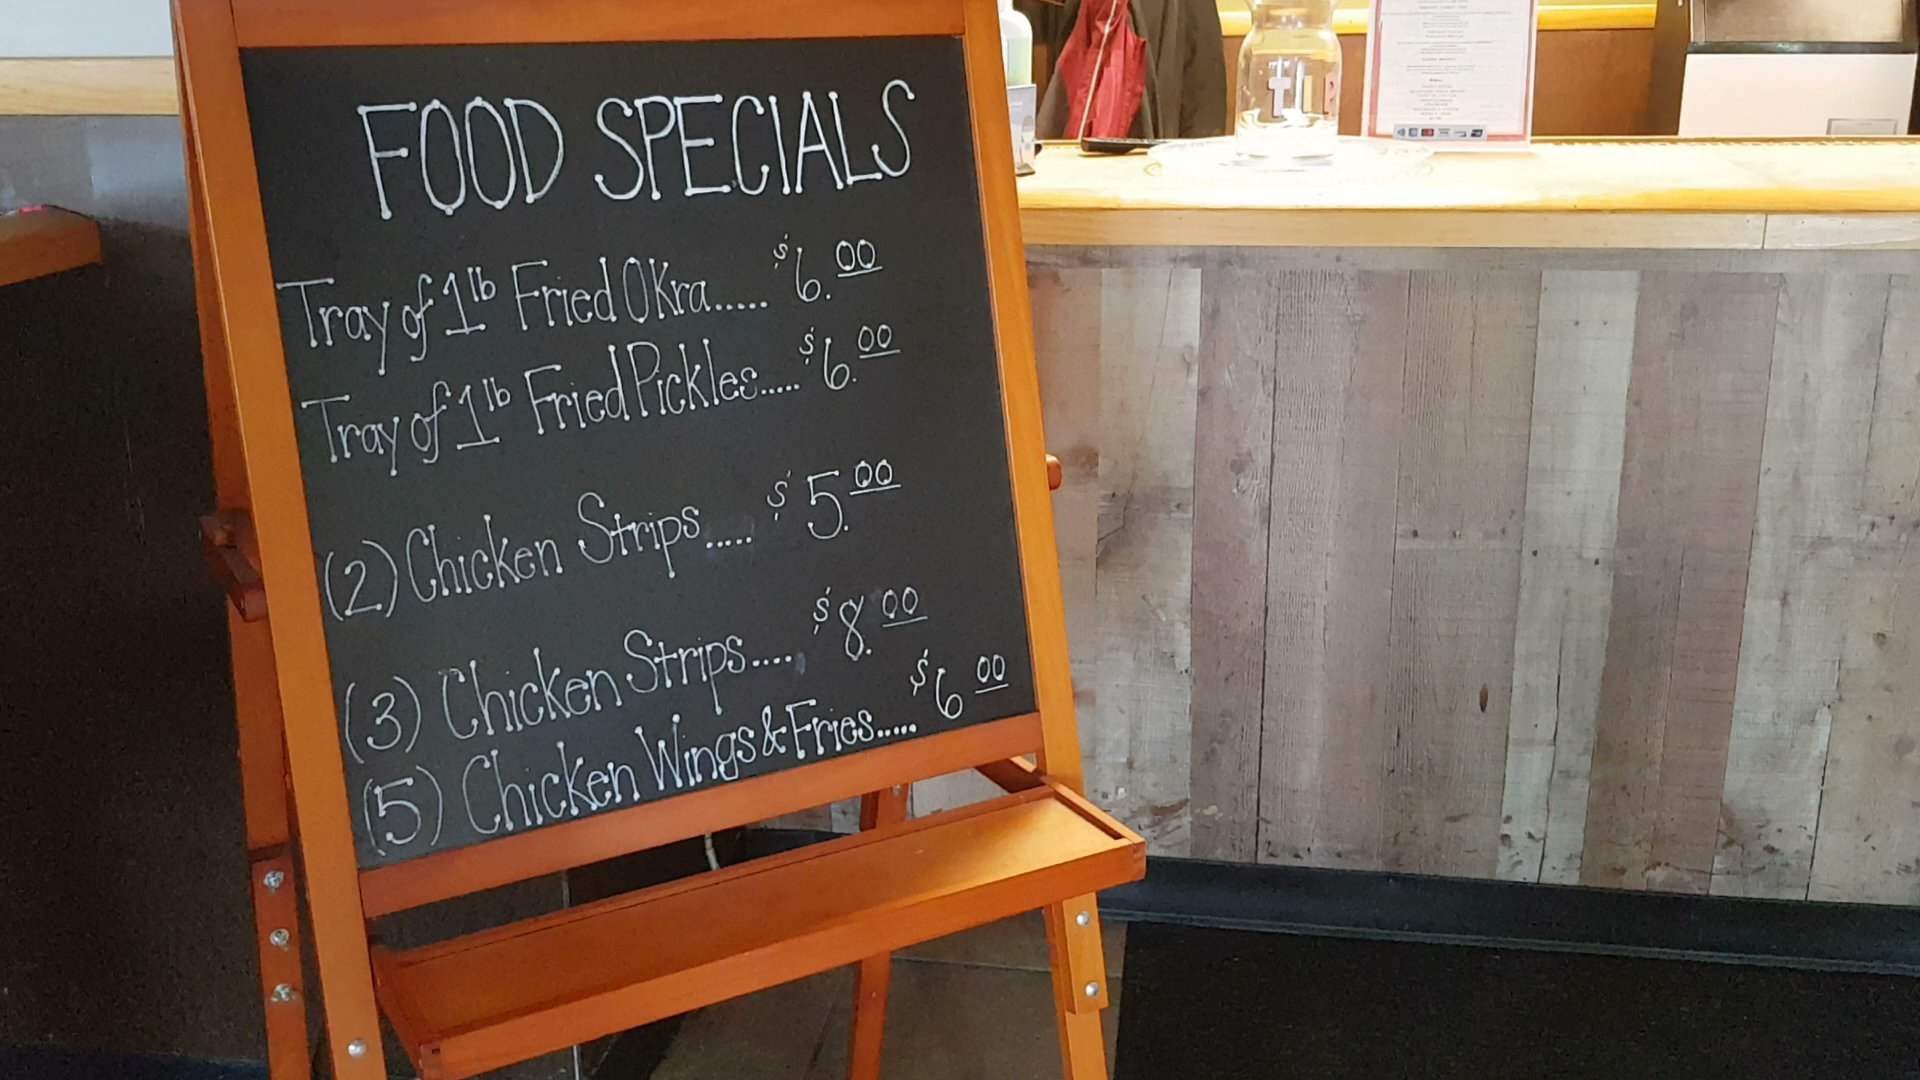 FOOD SPECIALS
Tray of 1lb Fried Okra..... $6.00
Tray of 1lb Fried Pickles..... $6.00
(2) Chicken Strips..... $5.00
(3) Chicken Strips.... $8.00
(5) Chicken Wings & Fries..... $6 00
TIP